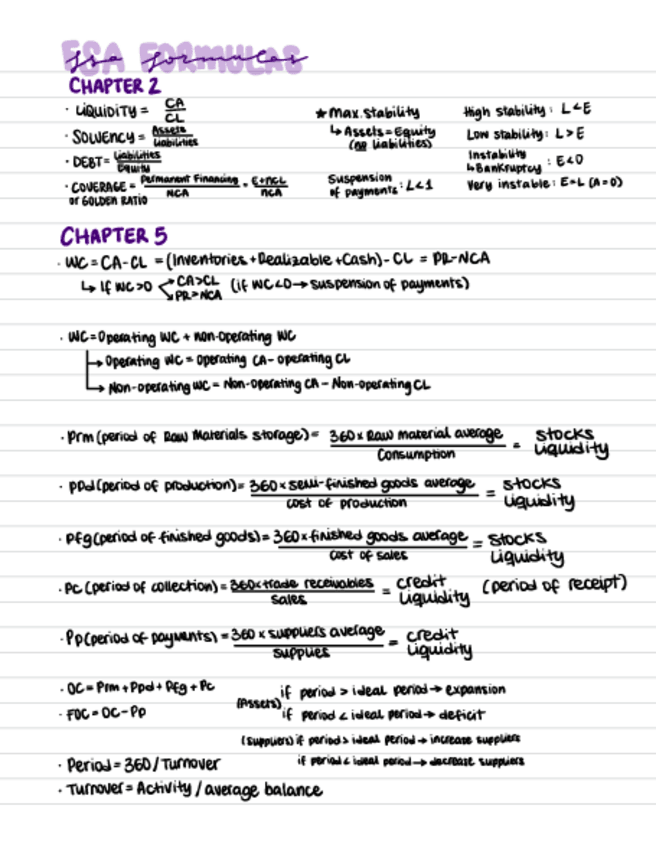 FSA FORMULAS
fsa formulas
CHAPTER 2
· LIQUIDITY = CA / CL
· SOLVENCY = Assets / Liabilities
· DEBT = Liabilities / Equity
· COVERAGE = Permanent Financing / NCA = E+NCL / NCA
or GOLDEN RATIO
★ Max. stability
↳ Assets = Equity
(no liabilities)
Suspension
of payments : L<1
High stability : L<E
Low stability : L>E
Instability
↳ Bankruptcy : E<0
Very instable : E=L (A=0)
CHAPTER 5
· WC = CA-CL = (Inventories + Realizable + Cash) - CL = PR-NCA
↳ If WC>0 CA>CL (if WC<0 → suspension of payments)
PR>NCA
· WC = Operating WC + non-Operating WC
→ Operating WC = Operating CA - operating CL
→ Non-operating WC = Non-Operating CA - Non-Operating CL
· Prm (period of Raw Materials storage) = 360 x Raw material average / Consumption = stocks liquidity
· PPd (period of production) = 360 x semi-finished goods average / cost of production = stocks liquidity
· Pfg (period of finished goods) = 360 x finished goods average / cost of sales = stocks liquidity
· Pc (period of collection) = 360 x trade receivables / sales = credit liquidity (period of receipt)
· Pp (period of payments) = 360 x suppliers average / supplies = credit liquidity
· OC = Prm + Ppd + Pfg + Pc
· FOC = OC - Pp
(Assets) if period > ideal period → expansion
if period < ideal period → deficit
(suppliers) if period > ideal period → increase suppliers
if period < ideal period → decrease suppliers
· Period = 360 / Turnover
· Turnover = Activity / average balance